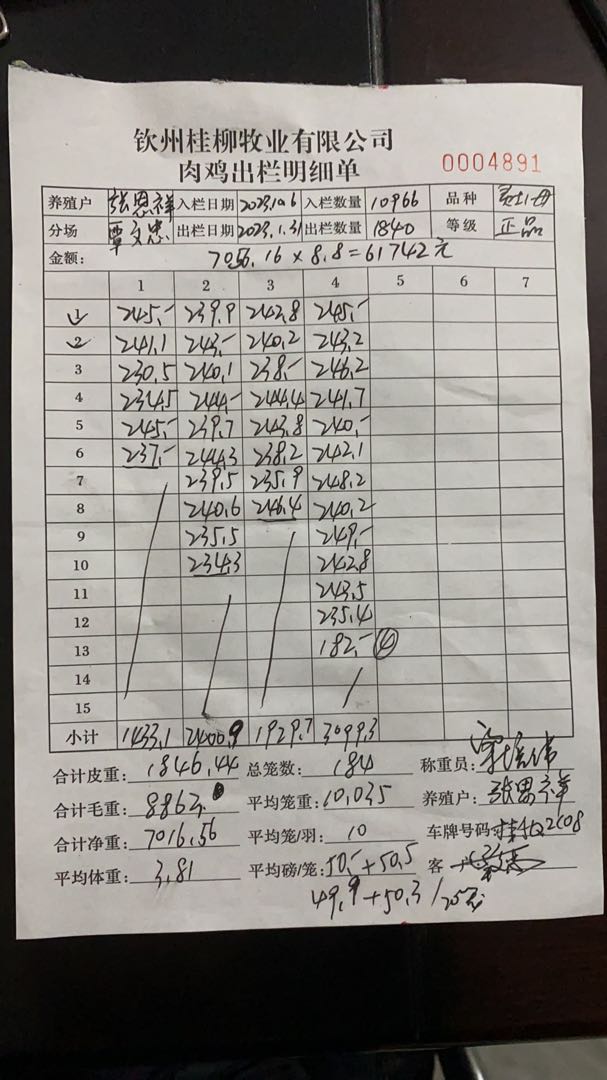 钦州桂柳牧业有限公司
肉鸡出栏明细单 0004891
养殖户 张恩祥 入栏日期 2023.10.6 入栏数量 10966 品种
分场 覃文忠 出栏日期 2023.1.31 出栏数量 1840 等级 正品
金额: 7016.16 × 8.8 = 61742元
1 2 3 4 5 6 7
1 245.- 239.9 242.8 245.-
2 241.1 243.- 240.2 243.2
3 230.5 240.1 238.- 246.2
4 234.5 244.- 244.4 241.7
5 245.- 239.7 243.8 240.-
6 237.- 244.3 238.2 242.1
7 239.5 235.9 248.2
8 240.6 246.4 240.2
9 235.5 249.-
10 234.3 242.8
11 243.5
12 235.4
13 182.- ④
14
15
小计 1433.1 2400.9 1929.7 3099.3
合计皮重: 1846.44 总笼数: 184 称重员:
合计毛重: 8863. 平均笼重: 10.035 养殖户: 张恩祥
合计净重: 7016.56 平均笼/羽: 10 车牌号码
平均体重: 3.81 平均磅/笼: 50.- + 50.5 客户
49.9 + 50.3 / 20